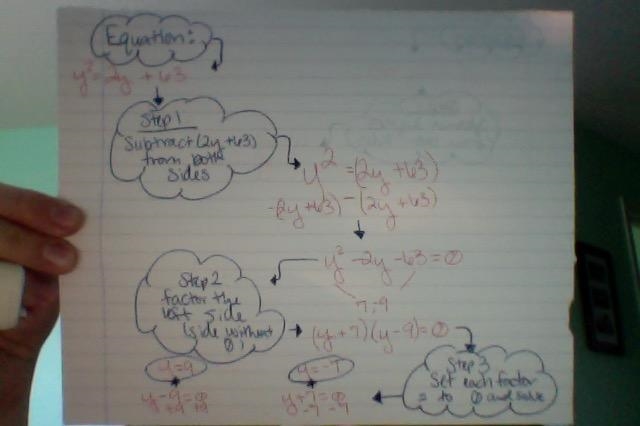 Equation:
y² = 2y + 63
Step 1
Subtract (2y+63)
from both
sides
y² = (2y+63)
-(2y+63) -(2y+63)
y² -2y -63 = 0
7,-9
Step 2
factor the
left side
(side without
0)
(y+7)(y-9)=0
Step 3
Set each factor
= to 0 and solve
y=9
y=-7
y-9=0
+9 +9
y+7=0
-7 -7